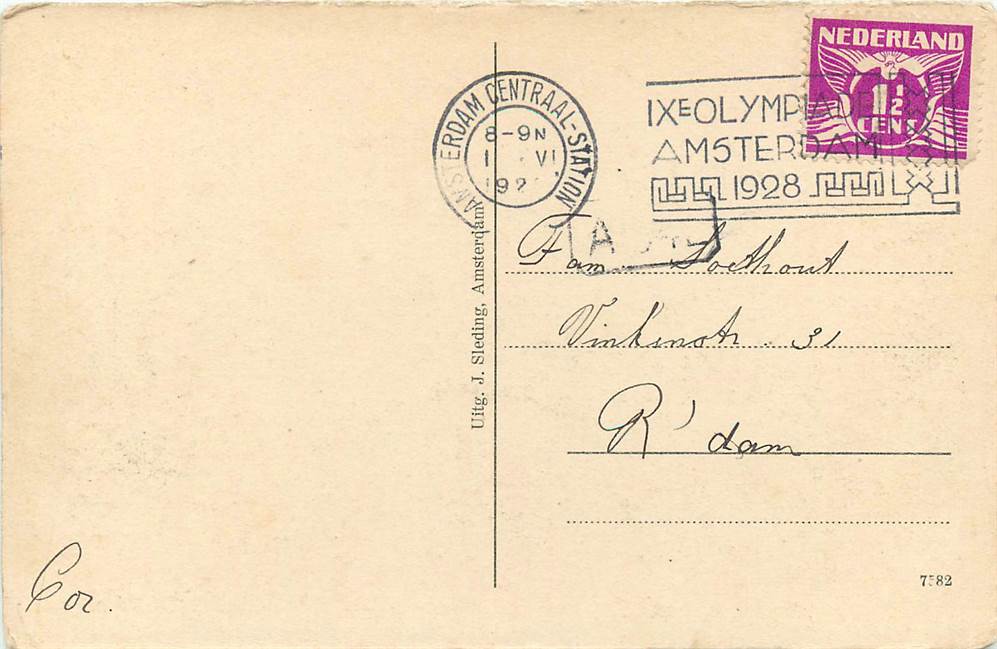 NEDERLAND
1½
CENT
AMSTERDAM CENTRAAL-STATION
8-9N
VI
IXE OLYMPIADE
AMSTERDAM
1928
Fam. Soethout
Vinkenstr. 31
R'dam
Uitg. J. Sleding, Amsterdam
Cor.
7582